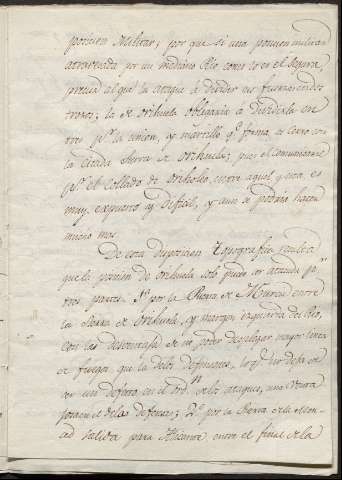 posicion Militar, por que si una posicion militar
atravesada por un mediano Rio como lo es el Segura,
precisa al que la ataque á dividir sus fuerzas en dos
trozos; la de Orihuela obligaria á dividirla en
tres pr. la union, y martillo q. forma el Cerro con
la citada Sierra de Orihuela; pues el comunicarse
pr. el Collado de Oriholes, entre aquel y esta, es
muy expuesto y Dificil, y aun se podria hacer
mucho mas.
De esta disposicion Topografica resulta
que la posicion de Orihuela solo puede ser atacada pr.
tres partes. 1º. por la Huerta de Murcia entre
la Sierra de Orihuela, y margen izquierda del Rio,
con las desventajas de no poder desplegar mayor linea
de fuegos que la delos defensores, lo q. no deja de
ser un defecto en el ordn. delos ataques, una ventaja
para el delas defensas; 2º. por la Huerta de la
salida para Alicante entre el final dela